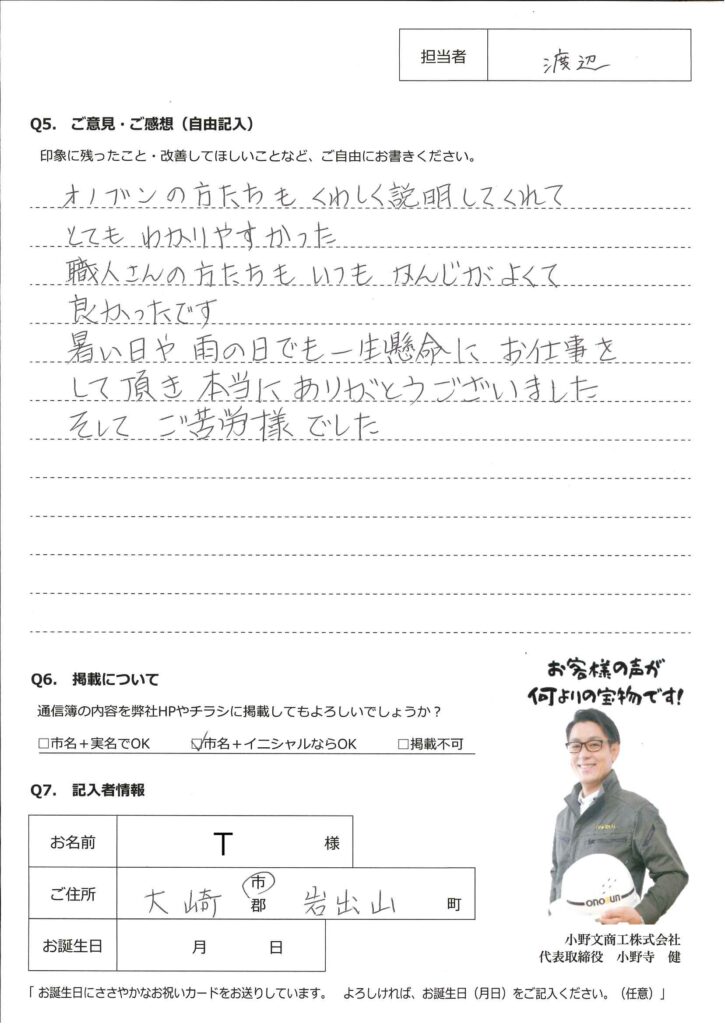 担当者 渡辺
Q5. ご意見・ご感想（自由記入）
印象に残ったこと・改善してほしいことなど、ご自由にお書きください。
オノブンの方たちも くわしく説明してくれて
とても わかりやすかった
職人さんの方たちも いつも かんじがよくて
良かったです
暑い日や 雨の日でも 一生懸命に お仕事を
して頂き 本当に ありがとうございました
そして ご苦労様でした
Q6. 掲載について
通信簿の内容を弊社HPやチラシに掲載してもよろしいでしょうか？
□市名＋実名でOK ☑市名＋イニシャルならOK □掲載不可
お客様の声が
何よりの宝物です！
Q7. 記入者情報
お名前 T 様
ご住所 大崎 市 郡 岩出山 町
お誕生日 月 日
onobun
小野文商工株式会社
代表取締役 小野寺 健
「 お誕生日にささやかなお祝いカードをお送りしています。 よろしければ、お誕生日（月日）をご記入ください。（任意）」